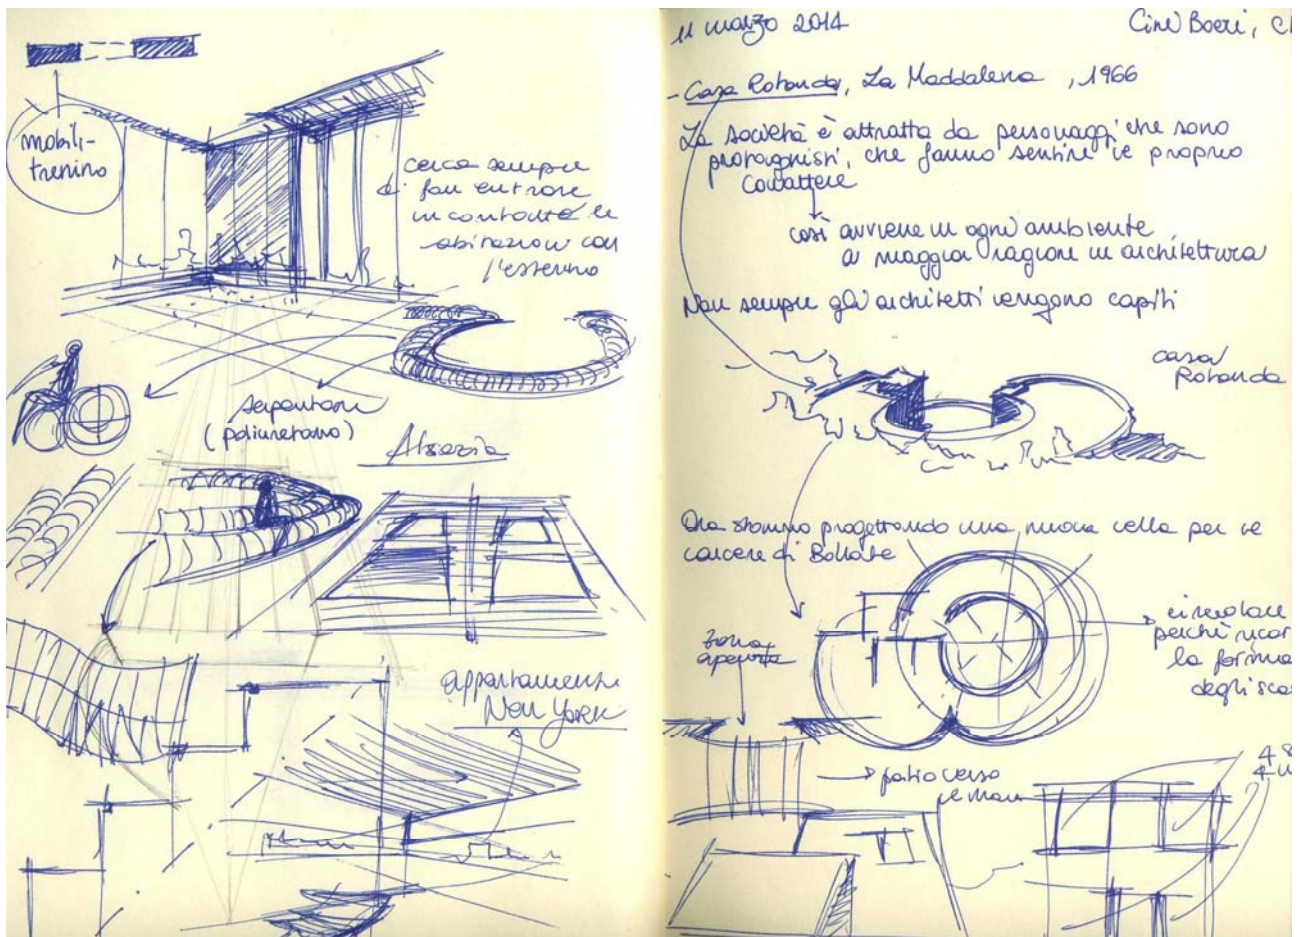 mobili-
trenino
cerca sempre
di far entrare
in contatto le
abitazioni con
l'esterno
serpentone
(poliuretano)
appartamento
New York
11 marzo 2014
Cini Boeri,
- Casa Rotonda, La Maddalena, 1966
La società è attratta da personaggi che sono
protagnisti, che fanno sentire il proprio
carattere
così avviene in ogni ambiente
a maggior ragione in architettura
Non sempre gli architetti vengono capiti
casa
Rotonda
Ora stanno progettando una nuova cella per il
carcere di Bollate
zona
aperta
circolare
perchè ricor
la forma
degli sco
patio verso
il mare